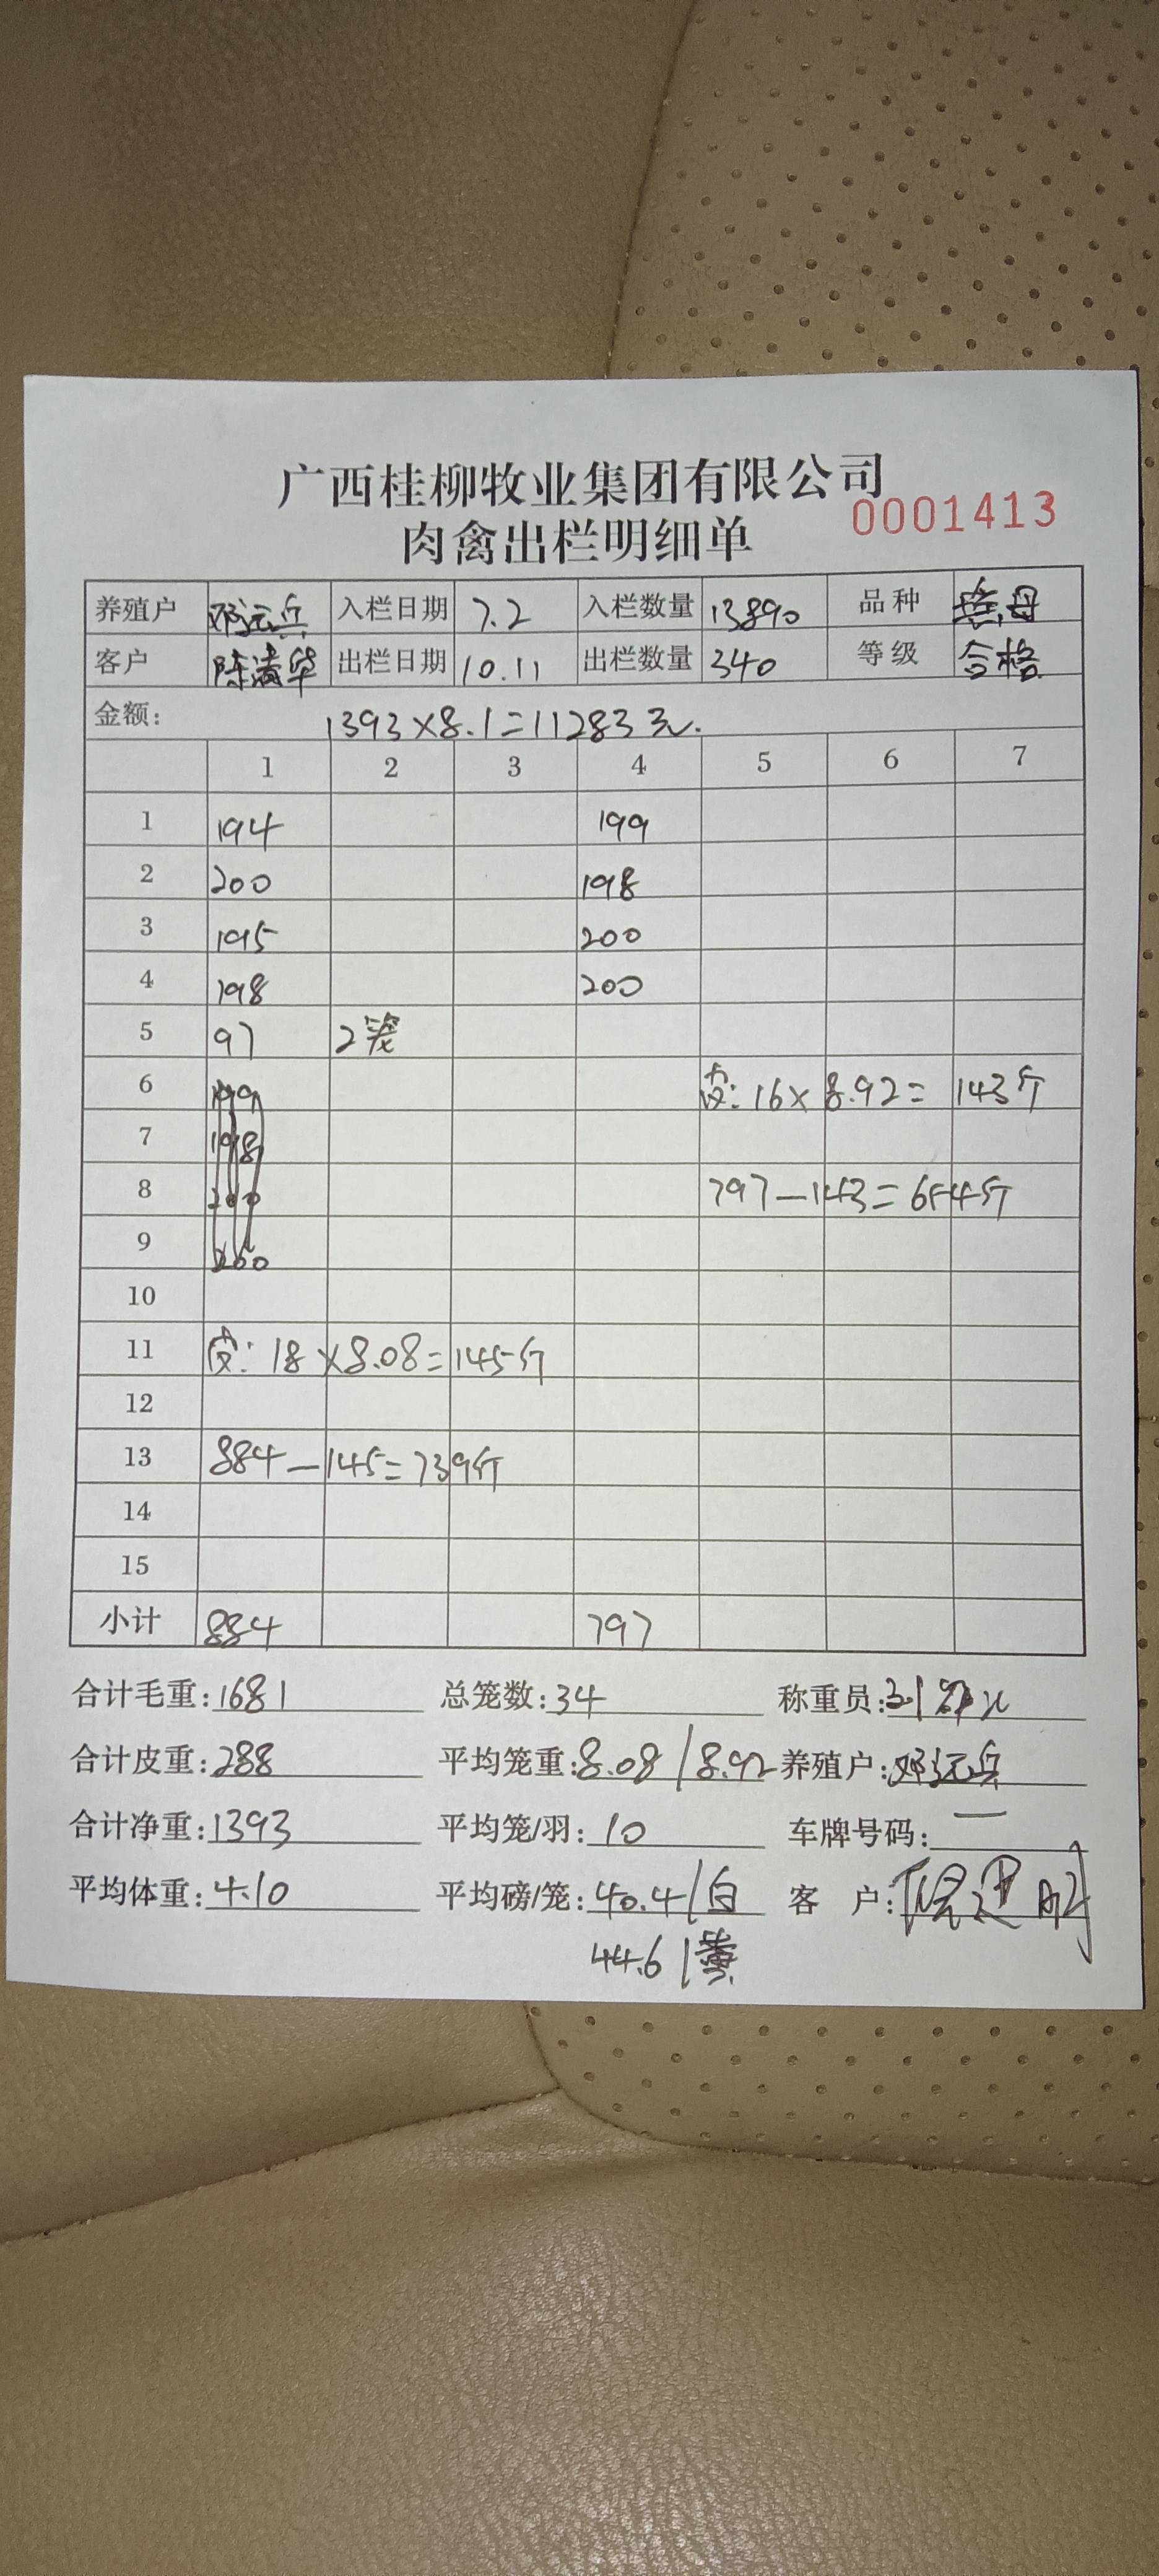 广西桂柳牧业集团有限公司
肉禽出栏明细单 0001413
养殖户 邓远兵 入栏日期 7.2 入栏数量 13890 品种 母
客户 陈满华 出栏日期 10.11 出栏数量 340 等级 合格
金额: 1393×8.1=11283元.
1 2 3 4 5 6 7
1 194 199
2 200 198
3 195 200
4 198 200
5 97 2笼
6 199 皮: 16×8.92= 143斤
7 198
8 200 797-143=654斤
9 200
10
11 皮: 18×8.08=145斤
12
13 884-145=739斤
14
15
小计 884 797
合计毛重: 1681 总笼数: 34 称重员:
合计皮重: 288 平均笼重: 8.08/8.92 养殖户: 邓远兵
合计净重: 1393 平均笼/羽: 10 车牌号码: —
平均体重: 4.10 平均磅/笼: 40.4/白 客户:
44.6/黄